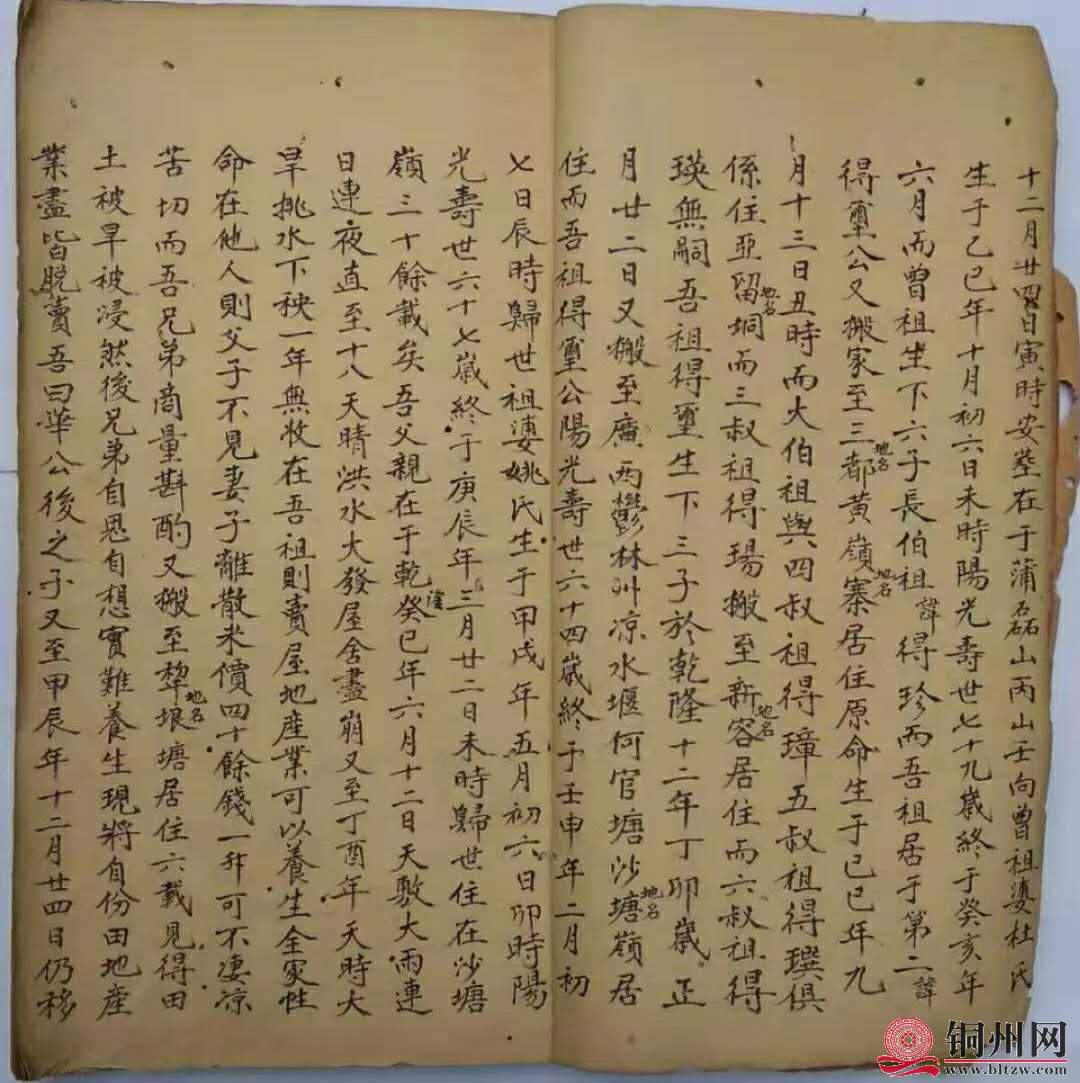 十二月廿四日寅時安塟在于蒲磊山丙山壬向曾祖婆杜氏
生于乙巳年十月初六日未時陽光壽世七十九歲終于癸亥年
六月而曾祖生下六子長伯祖諱得珍而吾祖居于第二諱
得璽公又搬家至三都地名黃嶺寨地名居住原命生于己巳年九
月十三日丑時而大伯祖與四叔祖得璋五叔祖得璵俱
係住亞留垌地名而三叔祖得瑒搬至新容地名居住而六叔祖得
瑛無嗣吾祖得璽生下三子於乾隆十二年丁卯歲正
月廿二日又搬至廣西鬱林州凉水堰何官塘沙塘嶺地名居
住而吾祖得璽公陽光壽世六十四歲終于壬申年二月初
七日辰時歸世祖婆姚氏生于甲戌年五月初六日卯時陽
光壽世六十七歲終于庚辰年三月廿二日未時歸世住在沙塘
嶺三十餘載矣吾父親在于乾隆癸巳年六月十二日天數大雨連
日連夜直至十八天晴洪水大發屋舍盡崩又至丁酉年天時大
旱挑水下秧一年無收在吾祖則賣屋地產業可以養生全家性
命在他人則父子不見妻子離散米價四十餘錢一升可不凄凉
苦切而吾兄弟商量斟酌又搬至犂埌塘地名居住六載見得田
土被旱被浸然後兄弟自思自想實難養生現將自份田地產
業盡皆脱賣吾曰華公後之子又至甲辰年十二月廿四日仍移
铜州网
www.bltzw.com